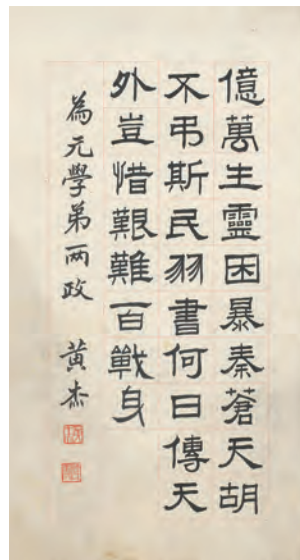 億萬生靈困暴秦蒼天胡
不弔斯民羽書何日傳天
外豈惜艱難百戰身
為元學弟兩政 黃杰